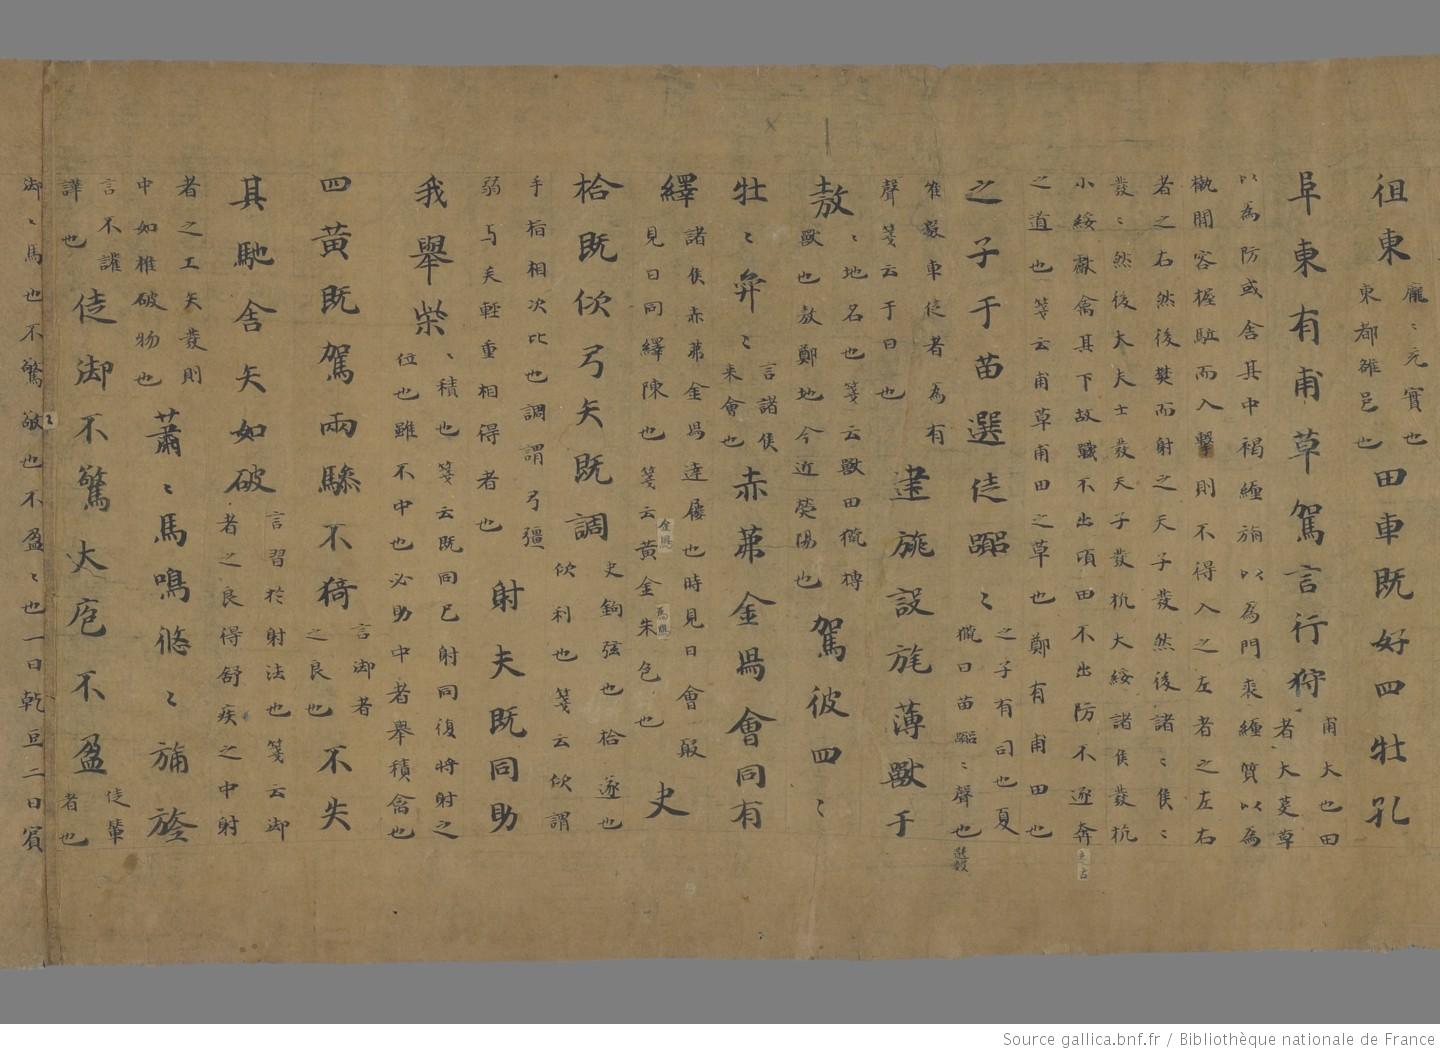 徂東龐〻充實也
東都雒邑也田車既好四牡孔
阜東有甫草駕言行狩甫大也田
者大芟草
以為防或舍其中褐纏旃以為門裘纏質以為
槸間容握駈而入擊則不得入之左者之左右
者之右然後焚而射之天子發然後諸〻侯〻
發〻然後大夫士發天子發抗大綏諸侯發抗
小綏獻禽其下故戰不出頃田不出防不逐奔
之道也箋云甫草甫田之草也鄭有甫田也
之子于苗選徒嚻〻之子有司也夏
獵曰苗嚻〻聲也
維數車徒者為有
聲箋云于曰也建旐設旄薄獸于
敖〻地名也箋云獸田獵搏
獸也敖鄭地今近滎陽也駕彼四〻
牡〻奕〻言諸侯
來會也赤茀金舄會同有
繹諸侯赤茀金舄達屨也時見曰會殷
見曰同繹陳也箋云黃金朱色也史
拾既佽弓矢既調史鉤弦也拾遂也
佽利也箋云佽謂
手指相次比也調謂弓彊
弱与矢輕重相得者也射夫既同助
我舉柴〻積也箋云既同已射同復將射之
位也雖不中也必助中者舉積禽也
四黃既駕兩驂不猗言御者
之良也不失
其馳舍矢如破言習於射法也箋云御
者之良得舒疾之中射
者之工矢發則
中如椎破物也蕭〻馬鳴悠〻旆旌
言不讙
譁也徒御不驚大庖不盈徒輦
者也
御〻馬也不驚〻也不盈〻也一曰乾豆二曰賓